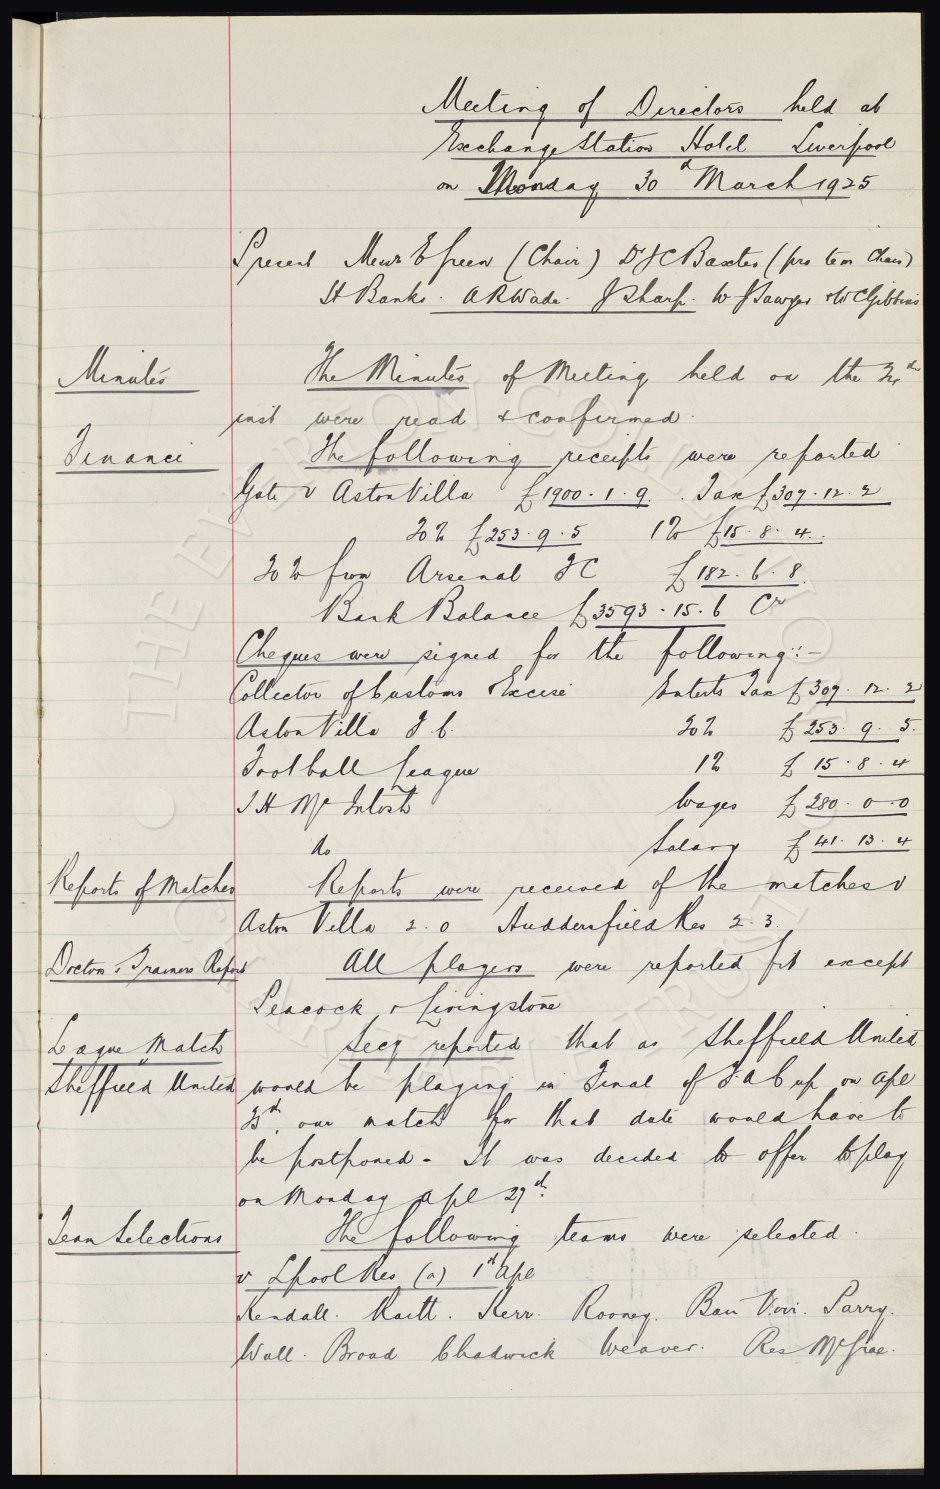 Meeting of Directors held at
Exchange Station Hotel Liverpool
on Monday 30th March 1925
Present Messrs E Green (Chair) Dr J C Baxter (pro tem Chair)
H Banks. A R Wade. J Sharp. W J Sawyer & W C Gibbins
Minutes
The Minutes of Meeting held on the 24th
inst were read & confirmed.
Finance
The following receipts were reported
Gate v Aston Villa £1900.1.9. Tax £309.12.2
20% £253.9.5 1% £15.8.4.
20% from Arsenal FC £182.6.8.
Bank Balance £3593.15.6 Cr
Cheques were signed for the following:-
Collector of Customs & Excise Enterts Tax £309.12.2
Aston Villa F.C. 20% £253.9.5.
Football League 1% £15.8.4
T H McIntosh Wages £280.0.0
do Salary £41.13.4
Reports of Matches
Reports were received of the matches v
Aston Villa 2.0 Huddersfield Res 2-3.
Doctors & Trainers Report
All players were reported fit except
Peacock & Livingstone
League Match
Sheffield United
Secy reported that as Sheffield United
would be playing in Final of F.A Cup on Apl
25th, our match for that date would have to
be postponed - It was decided to offer to play
on Monday Apl 27th.
Team Selections
The following teams were selected.
v Lpool Res (a) 1st Apl
Kendall. Raitt. Kerr. Rooney. Bain Virr. Parry.
Wall. Broad Chadwick Weaver. Res McGrae.
THE EVERTON COLLECTION
CHARITABLE TRUST